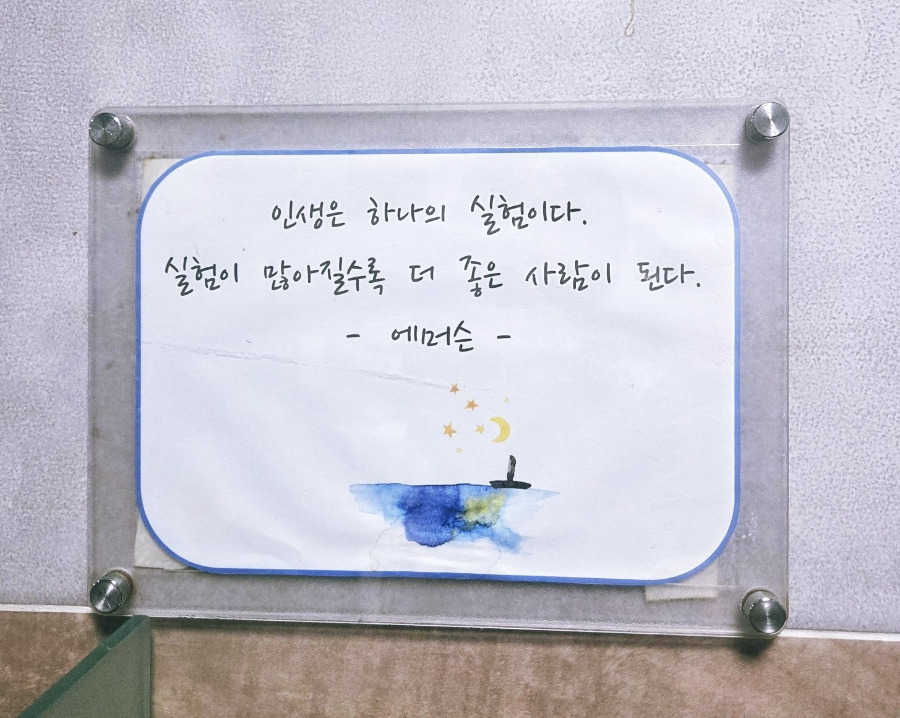 인생은 하나의 실험이다.
실험이 많아질수록 더 좋은 사람이 된다.
- 에머슨 -